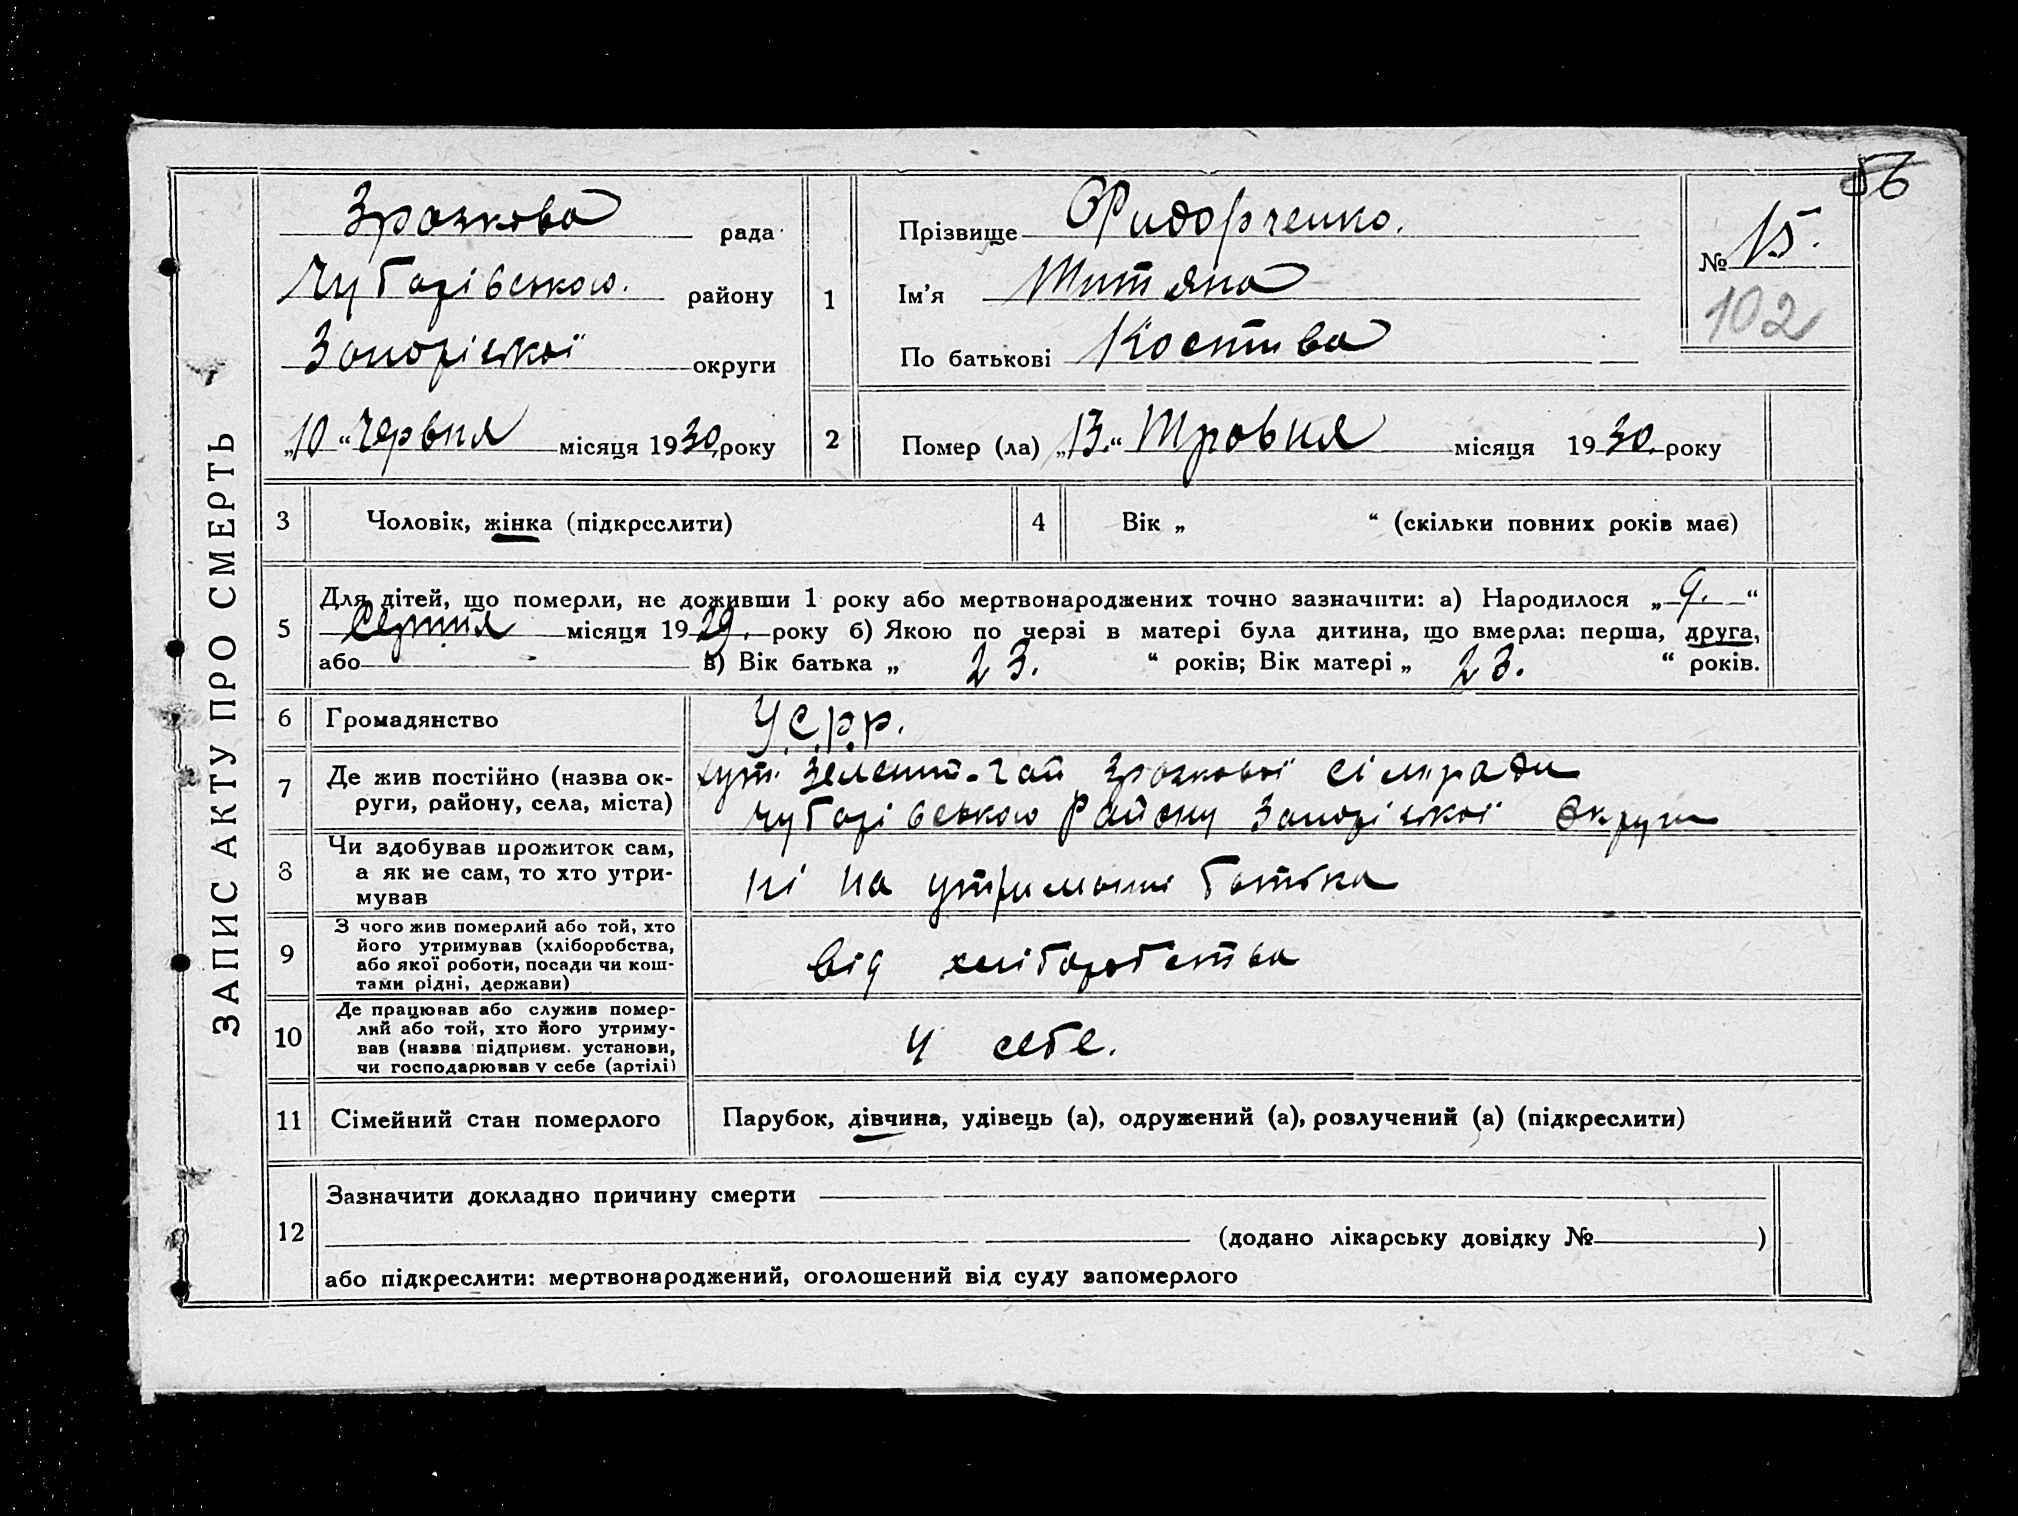 56
ЗАПИС АКТУ ПРО СМЕРТЬ
Зразкова рада
Чубарівського району
Запоріської округи
„10“ Червня місяця 1930 року
1 Прізвище Фидорченко.
Ім'я Титяна
По батькові Костива
№ 15.
102
2 Помер (ла) „13.“ Травня місяця 1930. року
3 Чоловік, жінка (підкреслити)
4 Вік „ “ (скільки повних років має)
5 Для дітей, що померли, не доживши 1 року або мертвонароджених точно зазначити: а) Народилося „9.“
Серпня місяця 1929. року б) Якою по черзі в матері була дитина, що вмерла: перша, друга,
або в) Вік батька „ 23. “ років; Вік матері „ 23. “ років.
6 Громадянство У.С.Р.Р.
7 Де жив постійно (назва округи, району, села, міста)
хут. Зелений-Гай Зразкової сільради
Чубарівського Району Запоріської Округи
8 Чи здобував прожиток сам,
а як не сам, то хто утри-
мував
ні на утриманні батька
9 З чого жив померлий або той, хто
його утримував (хліборобства,
або якої роботи, посади чи кош-
тами рідні, держави)
від хліборобства
10 Де працював або служив помер-
лий або той, хто його утриму-
вав (назва підприєм. установи,
чи господарював у себе (артілі)
у себе.
11 Сімейний стан померлого Парубок, дівчина, удівець (а), одружений (а), розлучений (а) (підкреслити)
12 Зазначити докладно причину смерти
(додано лікарську довідку № )
або підкреслити: мертвонароджений, оголошений від суду запомерлого